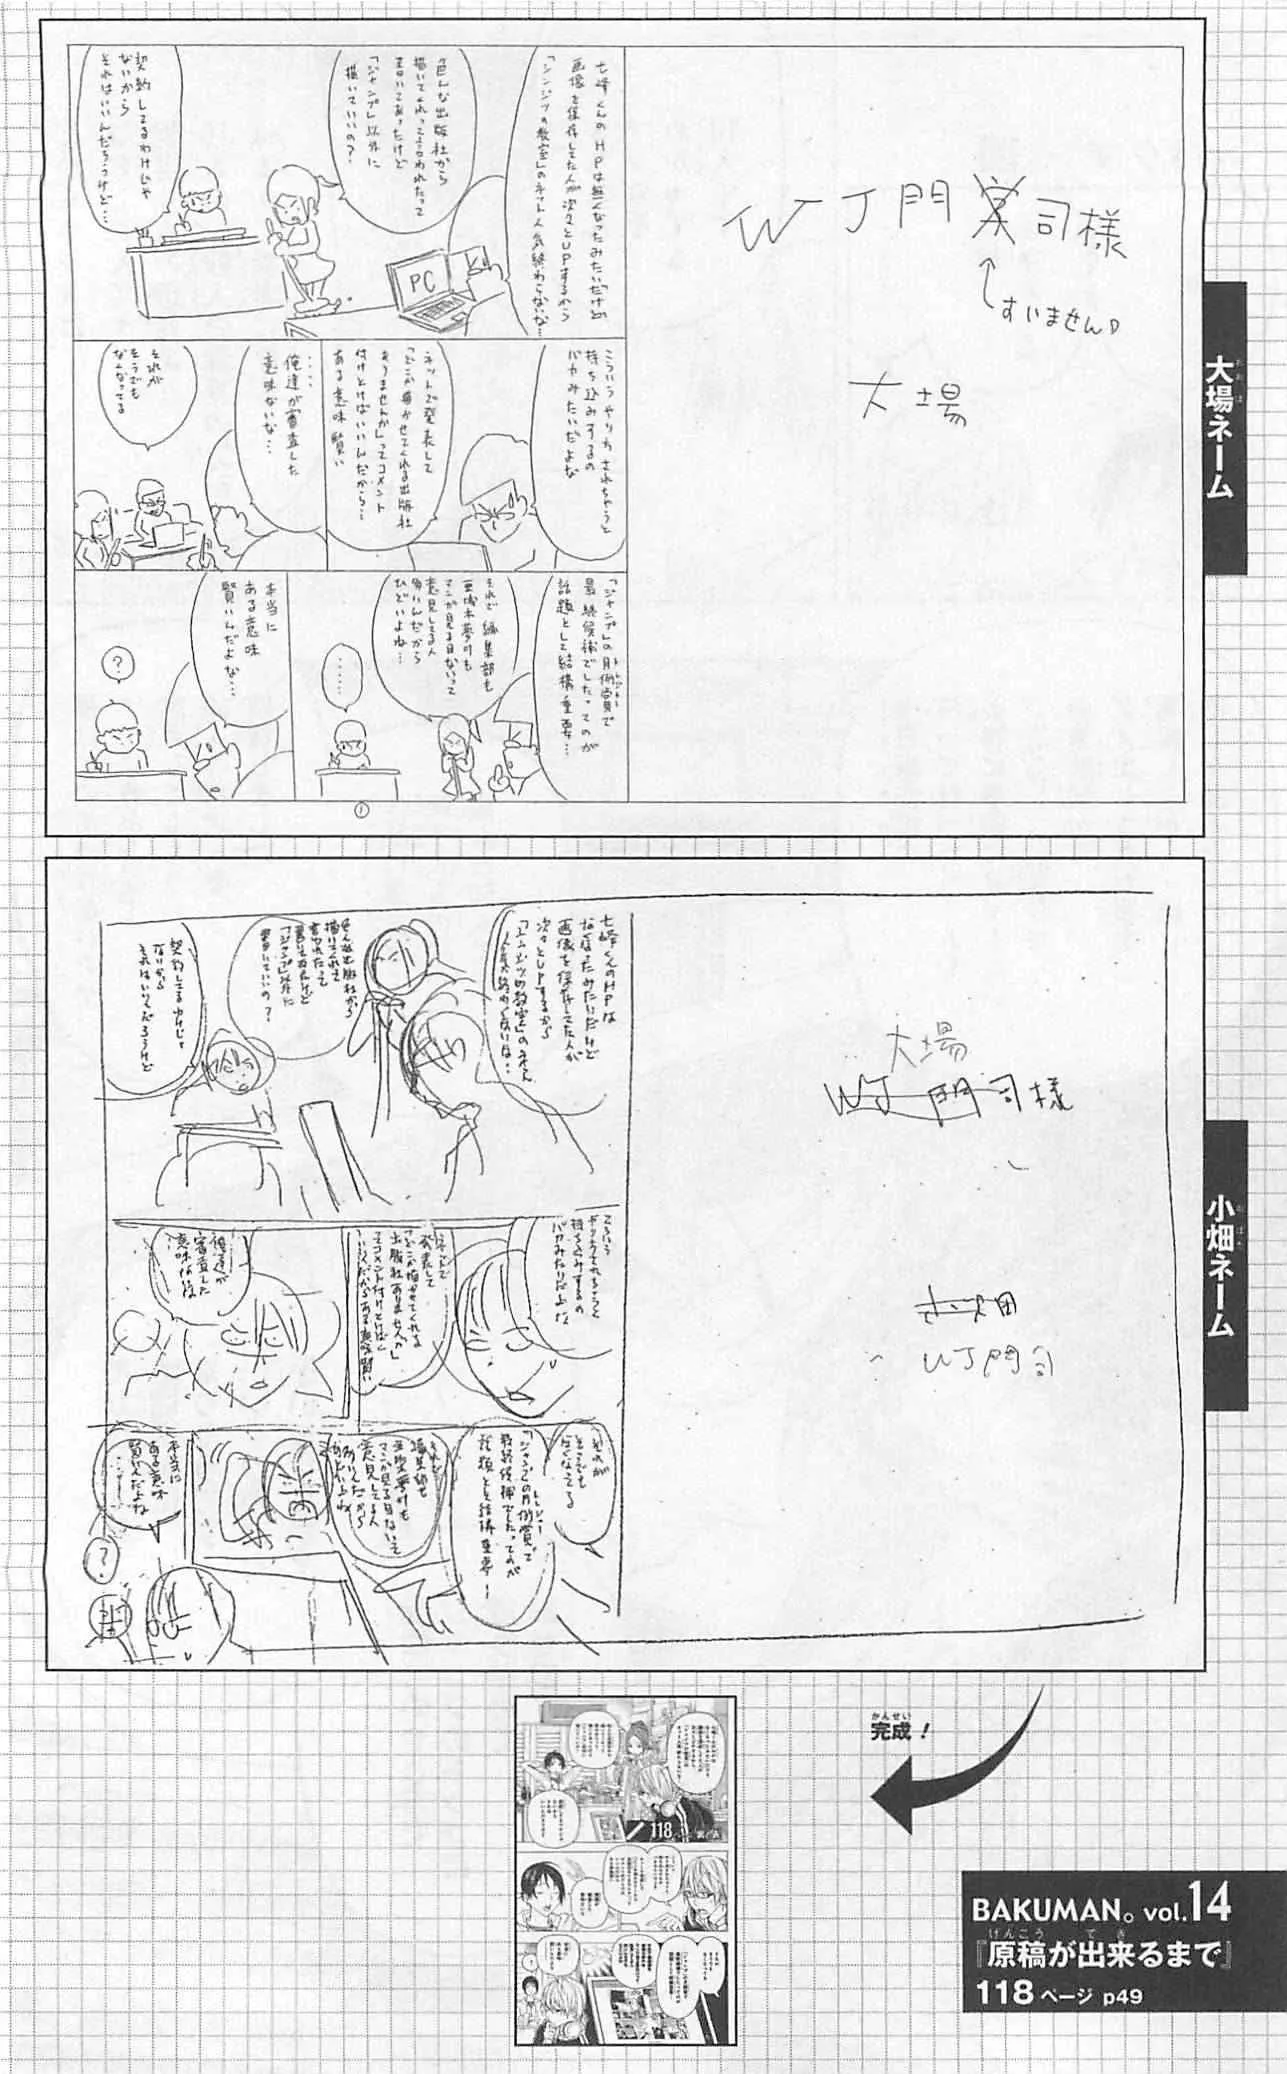 大場ネーム
おおば
WJ門司様
すいません
大場
七峰くんのHPは無くなったみたいだけど
画像を保存してた人が次々とUPするから
「シンジツの教室」のネット人気終わらないな…
色んな出版社から
描いてくれって言われたって
書いてあったけど
「ジャンプ」以外に
描いていいの?
契約してるわけじゃ
ないから
それはいいんだろうけど…
PC
こういうやり方されちゃうと
持ち込みするの
バカみたいだよな
ネットで発表して
「どこか描かせてくれる出版社
ありませんか」ってコメント
付けとけばいいんだから…
ある意味賢い
……
俺達が審査した
意味ないな…
それが
そうでも
なくなってる
「ジャンプ」の月例賞で
トレジャー
最終候補でしたってのが
話題として結構重要…
それで編集部も
亜城木夢叶も
マンガ見る目ないって
意見してる人
多いんだから
ひどいよね…
……
本当に
ある意味
賢いんだよな…
?
①
小畑ネーム
おばた
大場
WJ門司様
小畑
WJ門司
七峰くんのHPは
なくなったみたいだけど
画像を保存してた人が
次々とUPするから
「シンジツの教室」のネット
人気終わらないな…
色んな出版社から
描いてくれって
言われたって
書いてあったけど
「ジャンプ」以外に
描いていいの?
契約してるわけじゃ
ないから
それはいいんだろうけど
こういう
やり方されちゃうと
持ち込みするの
バカみたいだよな
ネットで
発表して
「どこか描かせてくれる
出版社ありませんか」
ってコメント付けとけば
いいんだからある意味賢い
俺達が
審査した
意味ないな
それが
そうでも
なくなってる
「ジャンプ」の月例賞で
トレジャー
最終候補でしたってのが
話題として結構重要…
それで
編集部も
亜城木夢叶も
マンガ見る目ないって
意見してる人
多いんだから
ひどいよね
本当に
ある意味
賢いんだよね
……
?
かんせい
完成!
118
BAKUMAN。vol.14
げんこう でき
『原稿が出来るまで』
118ページ p49